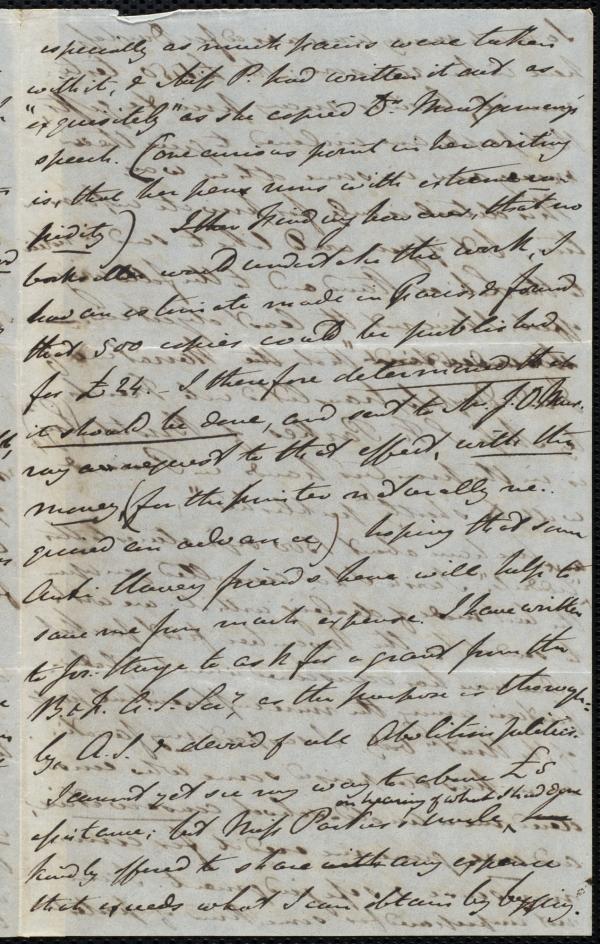 especially as much pains were taken
with it, & Miss P. had written it out as
"exquisitely" as she copied Dr Montgomery's
speech. (One curious point in her writing
is, that her pen runs with extreme ra-
pidity) I then finding however, that no
bookseller would undertake the work, I
had an estimate made in Paris, & found
that 500 copies could be published
for £24. — I therefore determined that
it should be done, and sent to Mr. J. O. Mur-
ray a request to that effect, with the
money, (for the printer naturally re-
quired an advance) hoping that some
Anti Slavery friends here will help to
save me from much expense. I have written
to for. to ask for a grant from the
B. & F. A. S. Socy, as the purpose is thorough-
ly A. S. & devoid of all Abolition politics.
I cannot yet see my way to above £5
on hearing of what I had done
assistance; but Miss Parker's uncle,
kindly offered to share with any expense
that exceeds what I can obtain by begging.